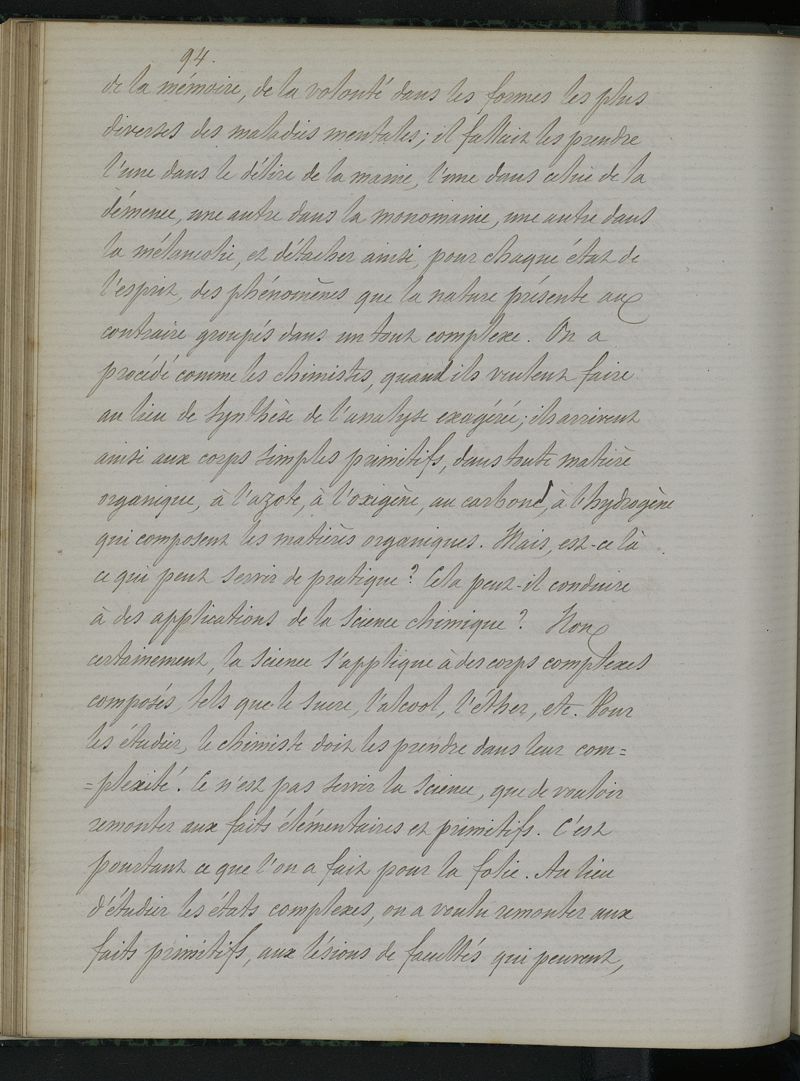 94.
de la mémoire, de la volonté dans les formes les plus
diverses des maladies mentales; il fallait les prendre
l'une dans le délire de la manie, l'une dans celui de la
démence, une autre dans la monomanie, une autre dans
la mélancolie, et détacher ainsi, pour chaque état de
l'esprit, des phénomènes que la nature présente au
contraire groupés dans un tout complexe. On a
procédé comme les chimistes, quand ils veulent faire
au lieu de synthèse de l'analyse exagérée; ils arrivent
ainsi aux corps simples primitifs, dans toute matière
organique, à l'azote, à l'oxigène, au carbone, à l'hydrogène
qui composent les matières organiques. Mais, est-ce là
ce qui peut servir de pratique? Cela peut-il conduire
à des applications de la science chimique? Non
certainement, la science s'applique à des corps complexes
composés, tels que le sucre, l'alcool, l'éther, etc. Pour
les étudier, le chimiste doit les prendre dans leur com=
=plexité. Ce n'est pas servir la science, que de vouloir
remonter aux faits élémentaires et primitifs. C'est
pourtant ce que l'on a fait pour la folie. Au lieu
d'étudier les états complexes, on a voulu remonter aux
faits primitifs, aux lésions de facultés qui peuvent,